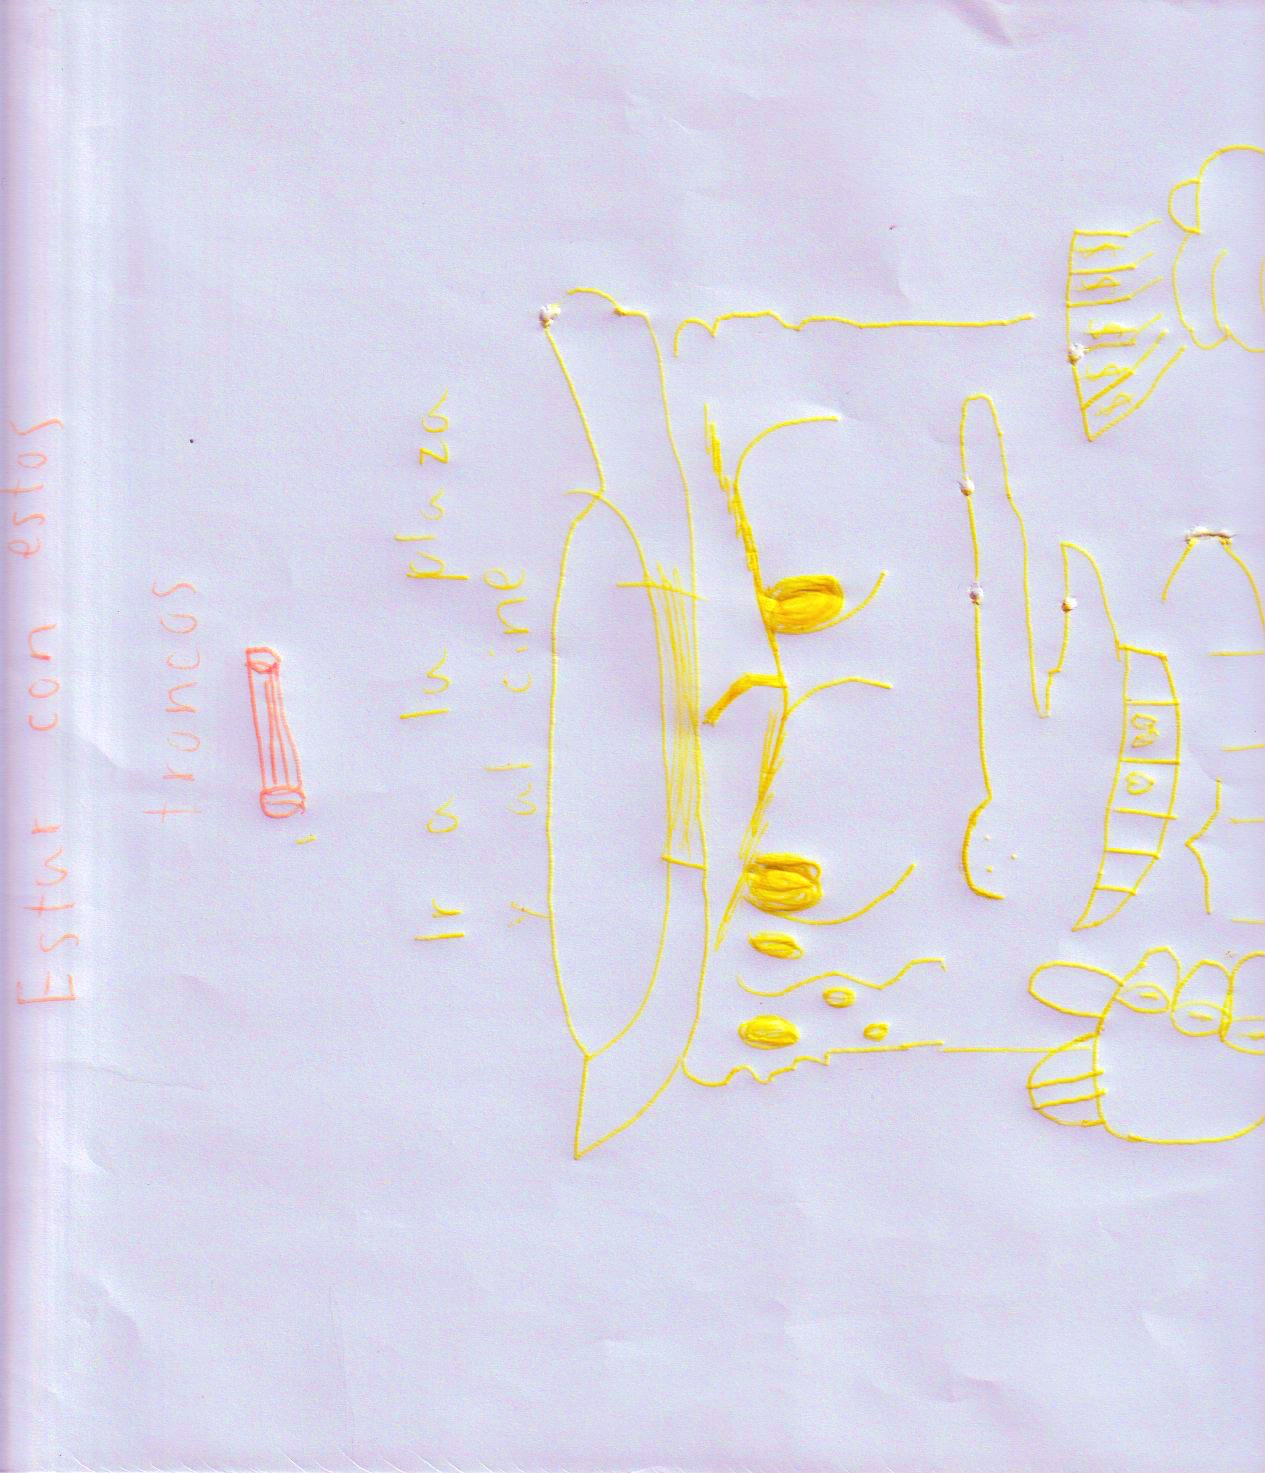 Estar con estos
troncos
Ir a la plaza
y al cine